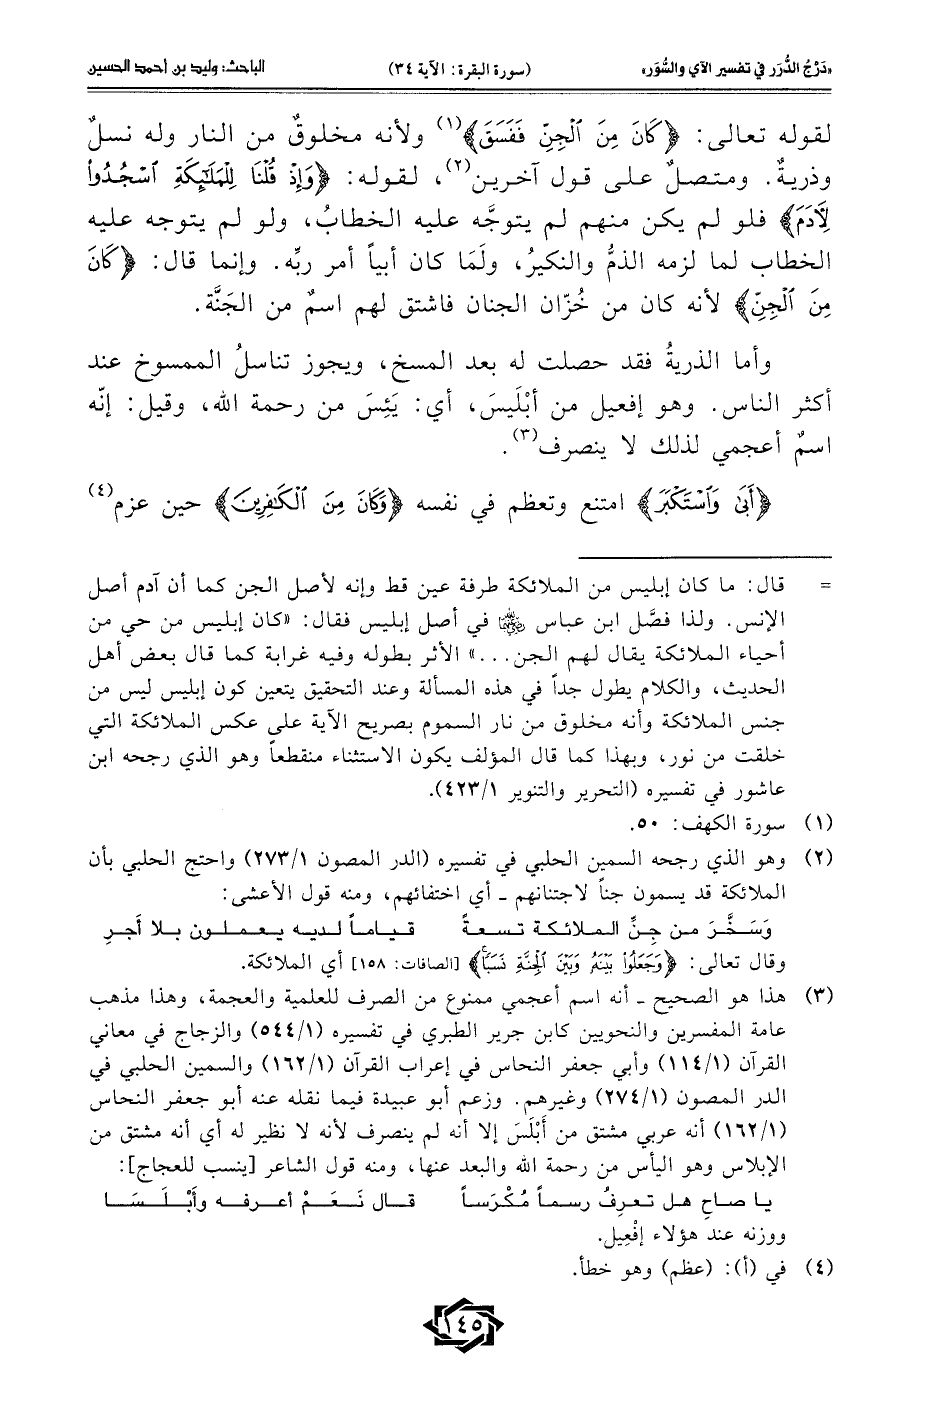 «دَرْجُ الدُّرَر في تفسير الآي والسُّوَر» (سورة البقرة: الآية ٣٤) الباحث: وليد بن أحمد الحسين
لقوله تعالى: ﴿كَانَ مِنَ ٱلْجِنِّ فَفَسَقَ﴾(١) ولأنه مخلوقٌ من النار وله نسلٌ
وذريةٌ. ومتصلٌ على قول آخرين(٢)، لقوله: ﴿وَإِذْ قُلْنَا لِلْمَلَٰٓئِكَةِ ٱسْجُدُوا۟
لِـَٔادَمَ﴾ فلو لم يكن منهم لم يتوجَّه عليه الخطابُ، ولو لم يتوجه عليه
الخطاب لما لزمه الذمُّ والنكيرُ، ولَمَا كان أبياً أمر ربِّه. وإنما قال: ﴿كَانَ
مِنَ ٱلْجِنِّ﴾ لأنه كان من خُزّان الجنان فاشتق لهم اسمٌ من الجَنَّة.
وأما الذريةُ فقد حصلت له بعد المسخ، ويجوز تناسلُ الممسوخ عند
أكثر الناس. وهو إفعيل من أبْلَيسَ، أي: يَئِسَ من رحمة الله، وقيل: إنّه
اسمٌ أعجمي لذلك لا ينصرف(٣).
﴿أَبَىٰ وَٱسْتَكْبَرَ﴾ امتنع وتعظم في نفسه ﴿وَكَانَ مِنَ ٱلْكَٰفِرِينَ﴾ حين عزم(٤)
= قال: ما كان إبليس من الملائكة طرفة عين قط وإنه لأصل الجن كما أن آدم أصل
الإنس. ولذا فصَّل ابن عباس رضي الله عنهما في أصل إبليس فقال: «كان إبليس من حي من
أحياء الملائكة يقال لهم الجن...» الأثر بطوله وفيه غرابة كما قال بعض أهل
الحديث، والكلام يطول جداً في هذه المسألة وعند التحقيق يتعين كون إبليس ليس من
جنس الملائكة وأنه مخلوق من نار السموم بصريح الآية على عكس الملائكة التي
خلقت من نور، وبهذا كما قال المؤلف يكون الاستثناء منقطعاً وهو الذي رجحه ابن
عاشور في تفسيره (التحرير والتنوير ٤٢٣/١).
(١) سورة الكهف: ٥٠.
(٢) وهو الذي رجحه السمين الحلبي في تفسيره (الدر المصون ٢٧٣/١) واحتج الحلبي بأن
الملائكة قد يسمون جناً لاجتنانهم ـ أي اختفائهم، ومنه قول الأعشى:
وَسَخَّرَ من جِنِّ الملائكة تسعةً قياماً لديه يعملون بلا أَجرِ
وقال تعالى: ﴿وَجَعَلُوا۟ بَيْنَهُۥ وَبَيْنَ ٱلْجِنَّةِ نَسَبًا﴾ [الصافات: ١٥٨] أي الملائكة.
(٣) هذا هو الصحيح ـ أنه اسم أعجمي ممنوع من الصرف للعلمية والعجمة، وهذا مذهب
عامة المفسرين والنحويين كابن جرير الطبري في تفسيره (٥٤٤/١) والزجاج في معاني
القرآن (١١٤/١) وأبي جعفر النحاس في إعراب القرآن (١٦٢/١) والسمين الحلبي في
الدر المصون (٢٧٤/١) وغيرهم. وزعم أبو عبيدة فيما نقله عنه أبو جعفر النحاس
(١٦٢/١) أنه عربي مشتق من أَبْلَسَ إلا أنه لم ينصرف لأنه لا نظير له أي أنه مشتق من
الإبلاس وهو اليأس من رحمة الله والبعد عنها، ومنه قول الشاعر [ينسب للعجاج]:
يا صاحِ هل تعرفُ رسماً مُكْرَساً قال نَعَمْ أعرفه وأَبْلَسَا
ووزنه عند هؤلاء إفْعِيل.
(٤) في (أ): (عظم) وهو خطأ.
١٤٥